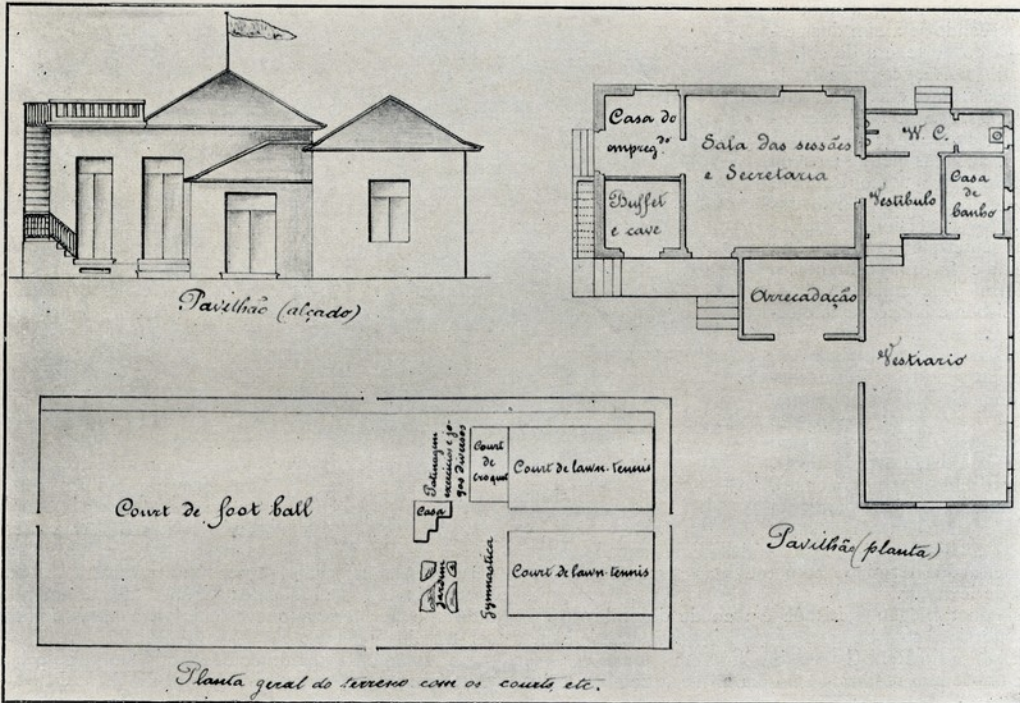 Pavilhão (alçado)
Casa do
empreg.do
Sala das sessões
e Secretaria
W. C.
Buffet
e cave
Vestibulo
Casa
de
banho
Arrecadação
Vestiario
Pavilhão (planta)
Court de foot ball
Patinagem
exercicios e jo-
gos diversos
Court
de
croquet
Court de lawn-tennis
Casa
Jardim
Gymnastica
Court de lawn-tennis
Planta geral do terreno com os courts, etc.